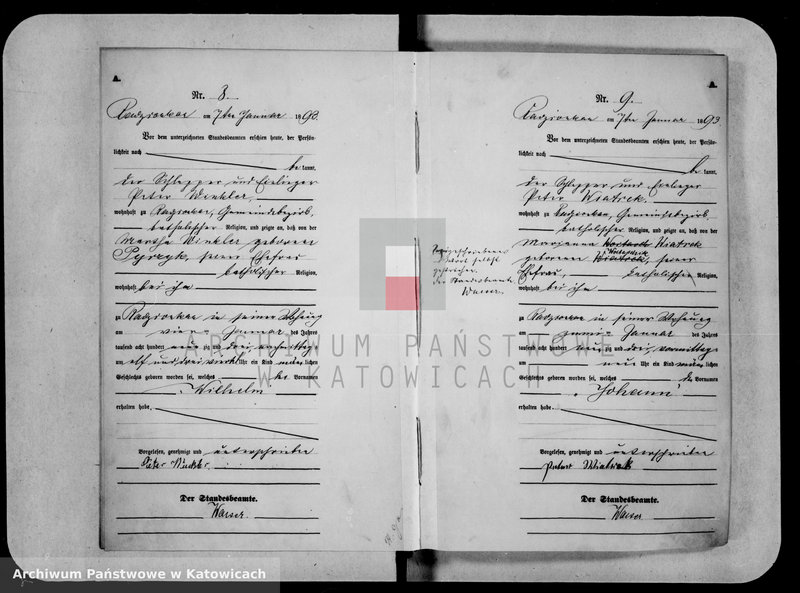 A.
Nr. 8.
Radzionkau am 7ten Januar 1893.
Vor dem unterzeichneten Standesbeamten erschien heute, der Persön-
lichkeit nach
be kannt,
der Schlepper und Einlieger
Peter Winkler,
wohnhaft zu Radzionkau, Gemeindebezirk,
katholischer Religion, und zeigte an, daß von der
Martha Winkler geborenen
seiner Ehefrau
katholischer Religion,
wohnhaft bei ihm
zu Radzionkau in seiner Wohnung
am Januar des Jahres
tausend acht hundert neun zig und drei
um elf und drei viertel Uhr ein Kind männlichen
Geschlechts geboren worden sei, welches den Vornamen
Wilhelm
erhalten habe.
Vorgelesen, genehmigt und unterschrieben
Der Standesbeamte.
A.
Nr. 9.
Radzionkau am 7ten Januar 1893
Vor dem unterzeichneten Standesbeamten erschien heute, der Persön-
lichkeit nach
be kannt,
der Schlepper und Einlieger
Peter Wiatrek.
wohnhaft zu Radzionkau, Gemeindebezirk,
katholischer Religion, und zeigte an, daß von der
Marianna Wiatrek
geborenen seiner
Ehefrau, katholischer Religion,
wohnhaft bei ihm
zu Radzionkau in seiner Wohnung
am Januar des Jahres
tausend acht hundert neun zig und drei, vormittags
um neun Uhr ein Kind männlichen
Geschlechts geboren worden sei, welches den Vornamen
Johann
erhalten habe.
Vorgelesen, genehmigt und unterschrieben
Wiatrek
Der Standesbeamte.
ARCHIWUM PAŃSTWOWE
W KATOWICACH
Archiwum Państwowe w Katowicach